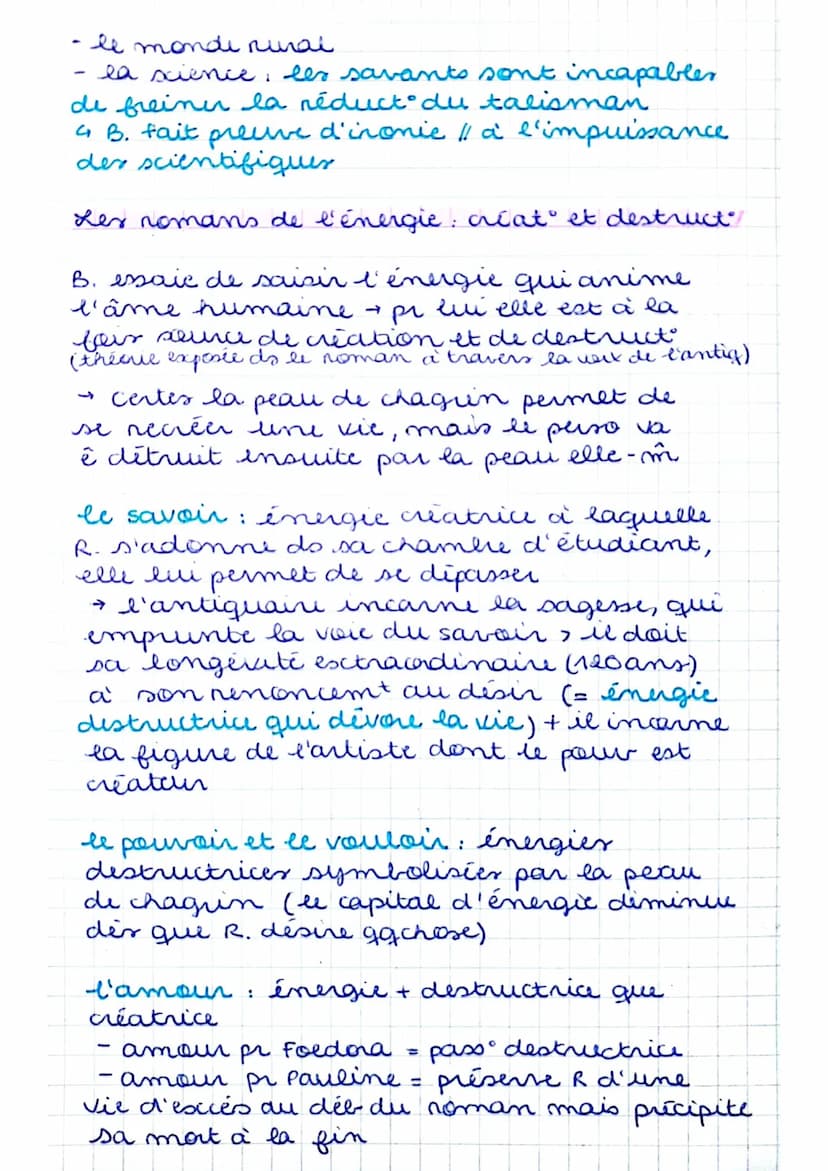 - le monde rural
- la science : les savants sont incapables
de freiner la réduct° du talisman
↳ B. fait preuve d'ironie // à l'impuissance
des scientifiques
Les romans de l'énergie : créat° et destruct°
B. essaie de saisir l'énergie qui anime
l'âme humaine → pr lui elle est à la
fois source de création et de destruct°
(théorie exposée ds le roman à travers la voix de l'antiq)
→ certes la peau de chagrin permet de
se recréer une vie, mais le perso va
ê détruit ensuite par la peau elle-m̂
le savoir : énergie créatrice à laquelle
R. s'adonne ds sa chambre d'étudiant,
elle lui permet de se dépasser
→ l'antiquaire incarne la sagesse, qui
emprunte la voie du savoir > il doit
sa longévité extraordinaire (120 ans)
à son renoncemt au désir (= énergie
destructrice qui dévore la vie) + il incarne
la figure de l'artiste dont le pouvr est
créateur
le pouvoir et le vouloir : énergies
destructrices symbolisées par la peau
de chagrin (le capital d'énergie diminue
dès que R. désire qqchose)
l'amour : énergie + destructrice que
créatrice
- amour pr Foedora = pass° destructrice
- amour pr Pauline = préserve R d'une
vie d'excès au déb du roman mais précipite
sa mort à la fin